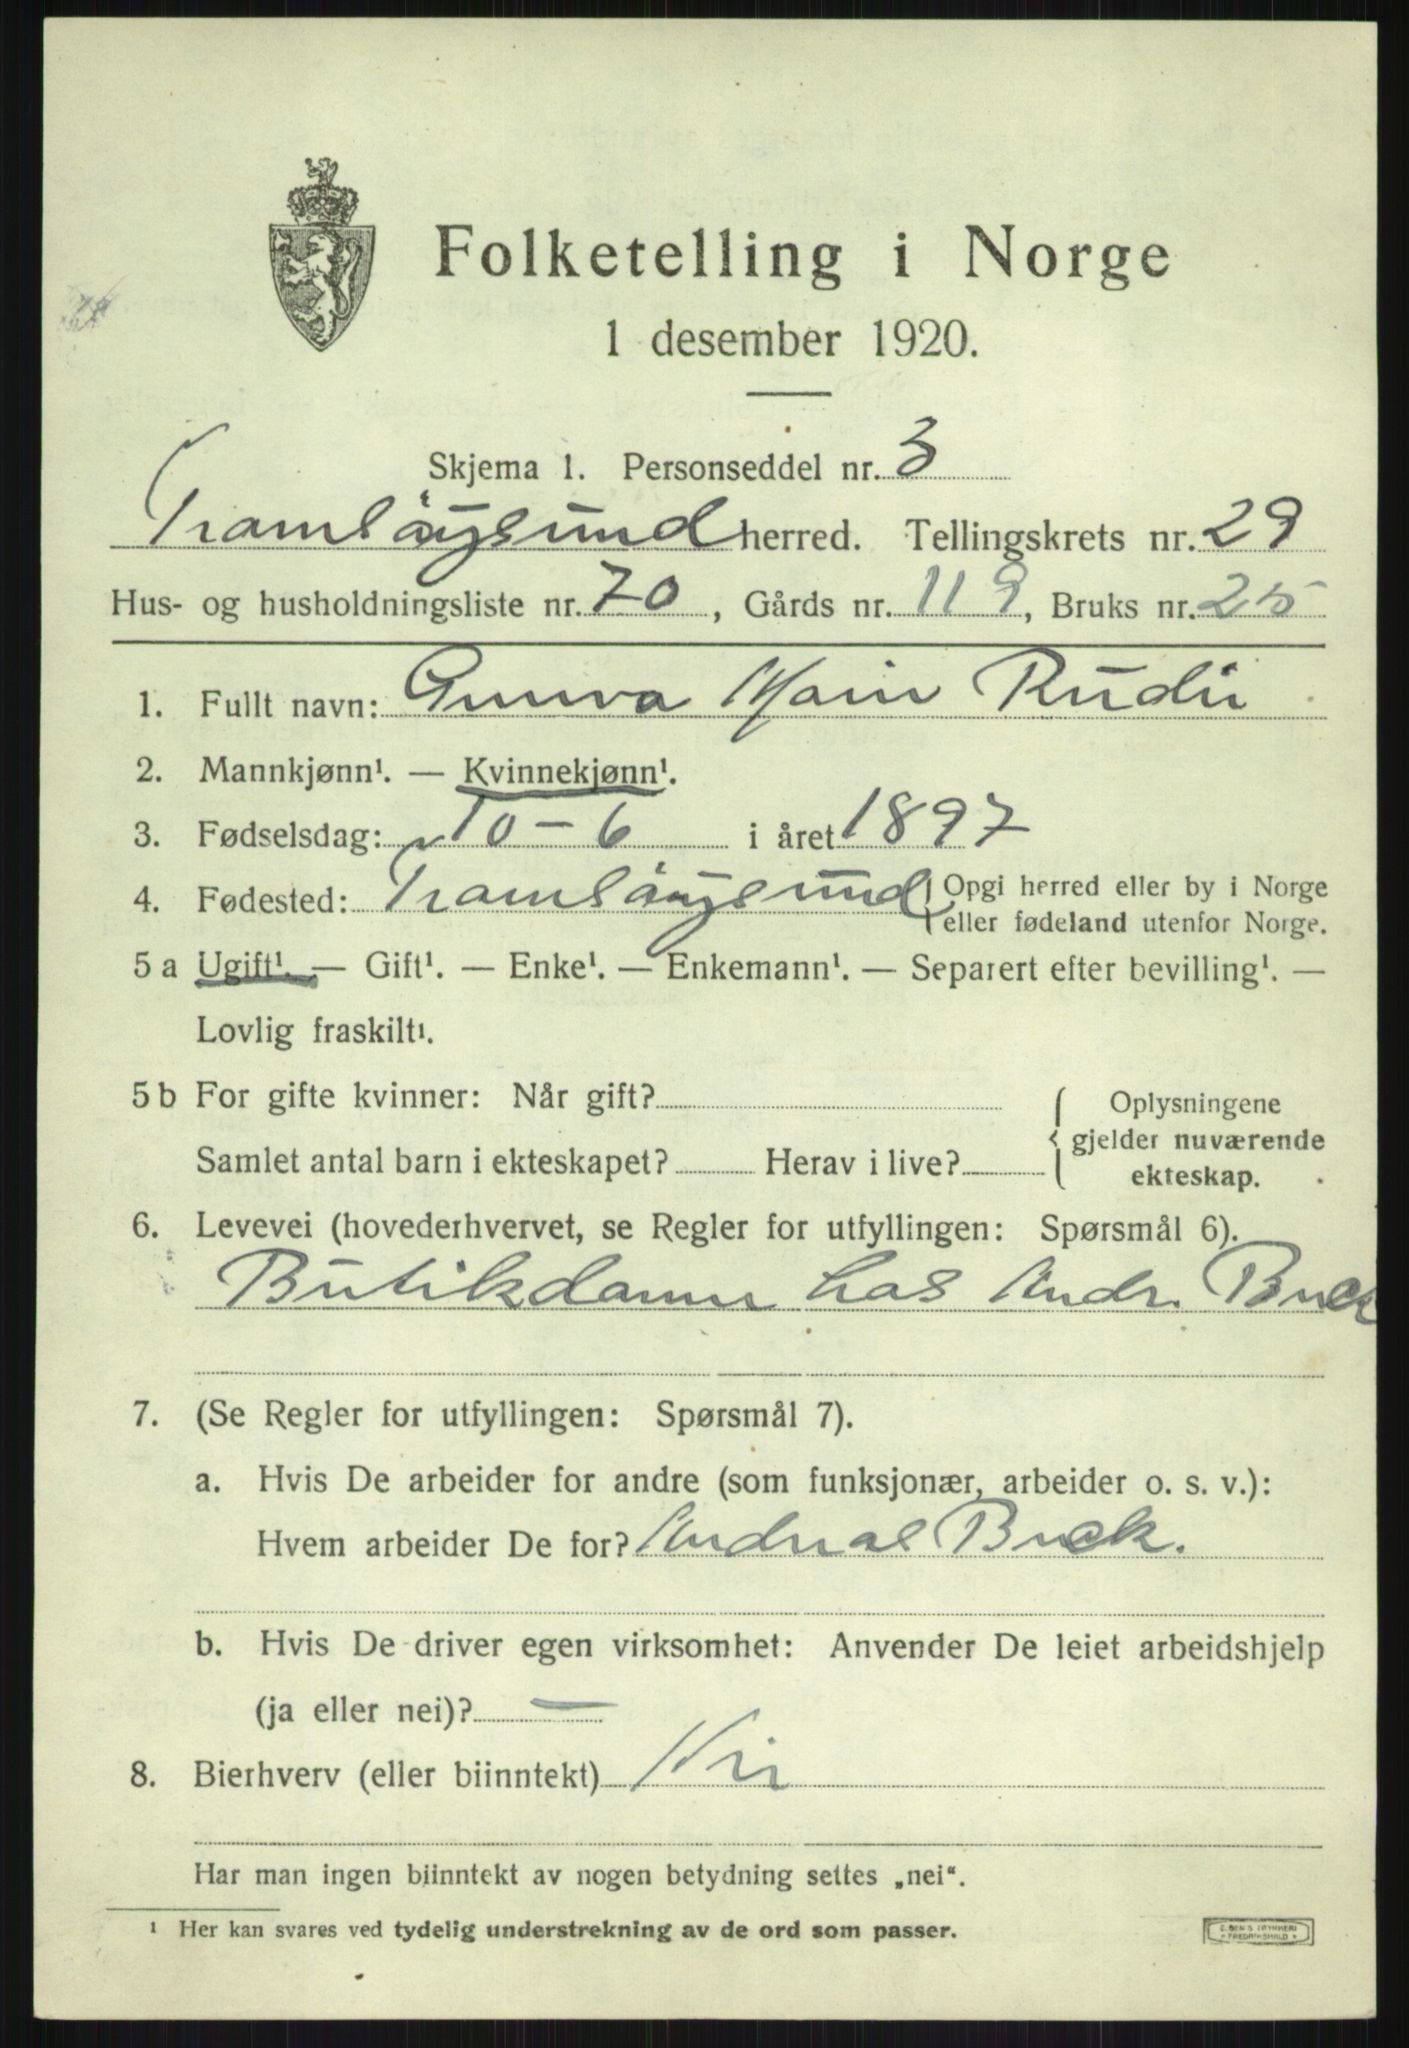 Folketelling i Norge
1 desember 1920.
Skjema 1. Personseddel nr. 3
Tromsöysund herred. Tellingskrets nr. 29
Hus- og husholdningsliste nr. 70, Gårds nr. 119, Bruks nr. 25
1. Fullt navn: Gunva Marie Rudii
2. Mannkjønn¹. — Kvinnekjønn¹.
3. Fødselsdag: 10 – 6 i året 1897
4. Fødested: Tromsöysund { Opgi herred eller by i Norge
eller fødeland utenfor Norge.
5 a Ugift¹. — Gift¹. — Enke¹. — Enkemann¹. — Separert efter bevilling¹. —
Lovlig fraskilt¹.
5 b For gifte kvinner: Når gift? { Oplysningene
gjelder nuværende
Samlet antal barn i ekteskapet? Herav i live? ekteskap.
6. Levevei (hovederhvervet, se Regler for utfyllingen: Spørsmål 6).
Butikdame hos Andr. Buck
7. (Se Regler for utfyllingen: Spørsmål 7).
a. Hvis De arbeider for andre (som funksjonær, arbeider o. s. v.):
Hvem arbeider De for? Andreas Buck.
b. Hvis De driver egen virksomhet: Anvender De leiet arbeidshjelp
(ja eller nei)? —
8. Bierhverv (eller biinntekt) Nei
Har man ingen biinntekt av nogen betydning settes „nei“.
¹ Her kan svares ved tydelig understrekning av de ord som passer.
E. SEM'S TRYKKERI
* FREDRIKSHALD *